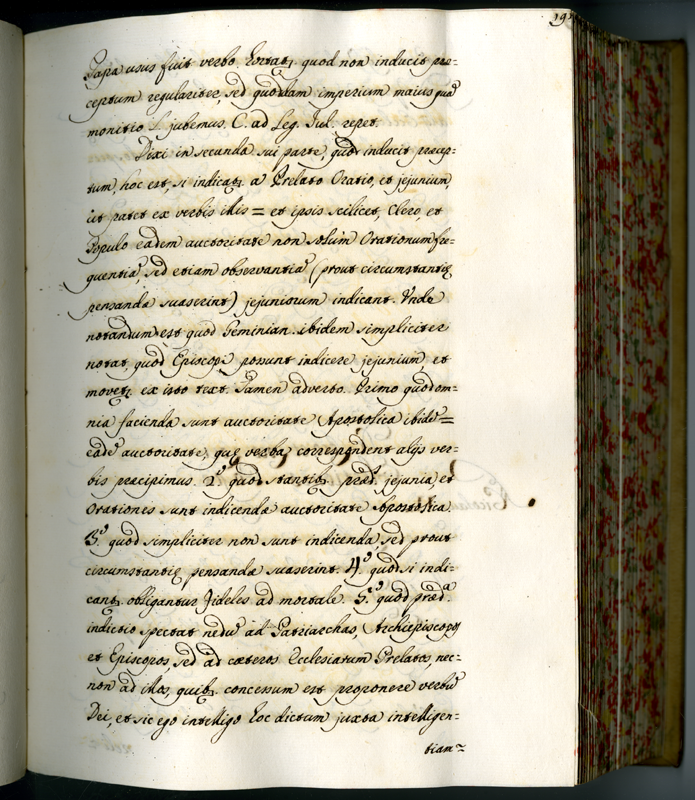 19
Papa usus fuit verbo hortatr. quod non inducit præ=
ceptum regulariter, sed quoddam imperium maius quã
monitio L. jubemus. C. ad Leg. Jul. repet.
Dixi in secunda sui parte, quod inducit præcep=
tum, hoc est, si indicatr. a Prelato Oratio, et jejunium,
ut patet ex verbis illis = et ipsis scilicet, Clero, et
Populo eadem auctoritate non solùm Orationum fre=
quentiã, sed etiam observantiã (prout circumstantię
pensanda suaserint) jejuniorum indicant. Unde
notandum est quod Geminian. ibidem simpliciter
notat, quod Episcopi possunt indicere jejunium, et
movetr. ex isto text. Tamen adverto. Primo quod om=
nia facienda sunt auctoritate Apostolica ibidẽ =
eadẽ auctoritate, quę verba correspondent alijs ver=
bis præcipimus. 2.º quod stantibq. præd. jejunia et
Orationes sunt indicendæ auctoritate Apostolica
3.º quod simpliciter non sunt indicenda sed prout
circumstantię pensandæ suaserint. 4.º quod si indi=
cantr. obligantur fideles ad mortale. 5.º quod præd.ª
indictio spectat nedũ ad Patriarchas, Archiepiscopos
et Episcopos, sed ad cæteros Ecclesiarum Prelatos, nec=
non ad illos, quibq. concessum est proponere verbũ
Dei, et sic ego intelligo hoc dictum juxta intelligen=
tiam